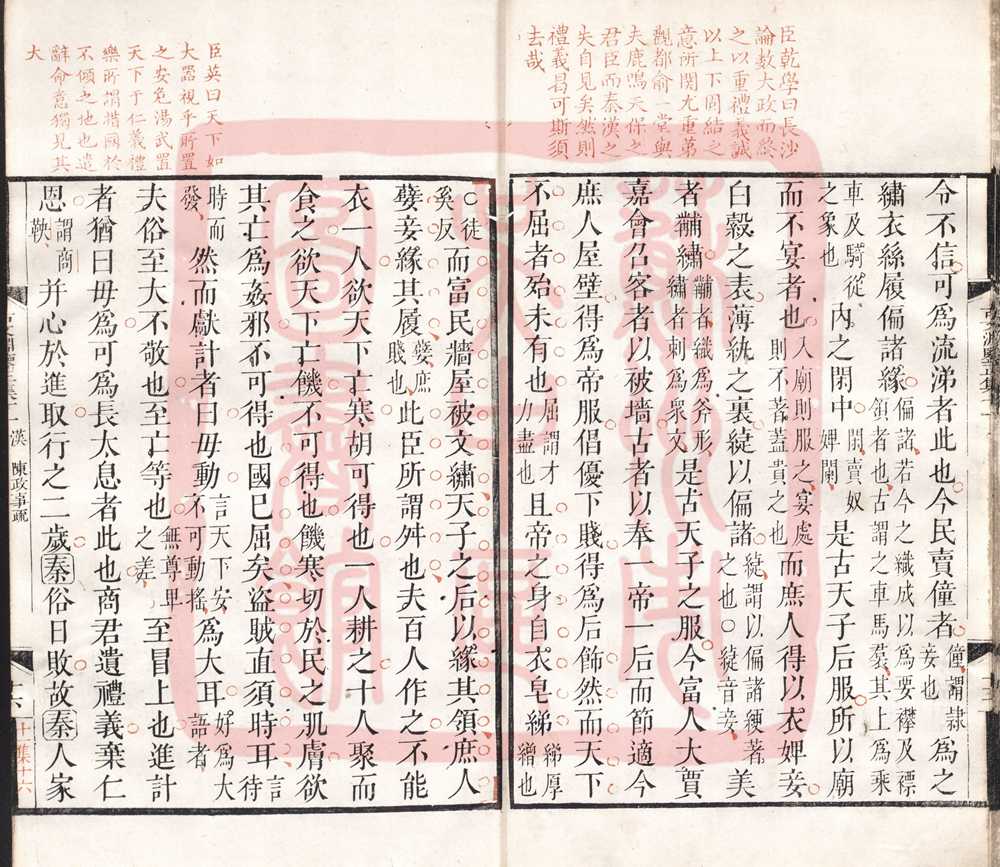 臣乾學曰長沙
論數大政而終
之以重禮義誠
以上下固結之
意所関尤重第
觀都俞一堂與
夫鹿鳴天保之
君臣而秦漢之
失自見矣然則
禮義曷可斯須
去哉
令不信可為流涕者此也今民賣僮者僮謂隸妾也為之
繡衣絲履偏諸緣偏諸若今之織成以為要襻及褾領者也古謂之車馬裠其上為乘
車及騎從之象也內之閑中閑賣奴婢闌是古天子后服所以廟
而不宴者也入廟則服之宴處則不著蓋貴之也而庶人得以衣婢妾
白縠之表薄紈之裏緁以偏諸緁謂以偏諸緶著之也○緁音妾美
者黼繡黼者織為斧形繡者刺為衆文是古天子之服今富人大賈
嘉會召客者以被墻古者以奉一帝一后而節適今
庶人屋壁得為帝服倡優下賤得為后飾然而天下
不屈者殆未有也屈謂才力盡也且帝之身自衣皂綈綈厚繒也
臣英曰天下如
大器視乎所置
之安危湯武置
天下于仁義禮
樂所謂措國於
不傾之地也遣
辭命意獨見其
大
○徒奚反而富民牆屋被文繡天子之后以緣其領庶人
孽妾緣其履孽庶賤也此臣所謂舛也夫百人作之不能
衣一人欲天下亡寒胡可得也一人耕之十人聚而
食之欲天下亡饑不可得也饑寒切於民之肌膚欲
其亡為姦邪不可得也國已屈矣盜賊直須時耳言待
時而發然而獻計者曰毋動言天下安不可動搖為大耳好為大語者
夫俗至大不敬也至亡等也無尊卑之差至冒上也進計
者猶曰毋為可為長太息者此也商君遺禮義棄仁
恩謂商鞅并心於進取行之二歲秦俗日敗故秦人家
漢 陳政事疏